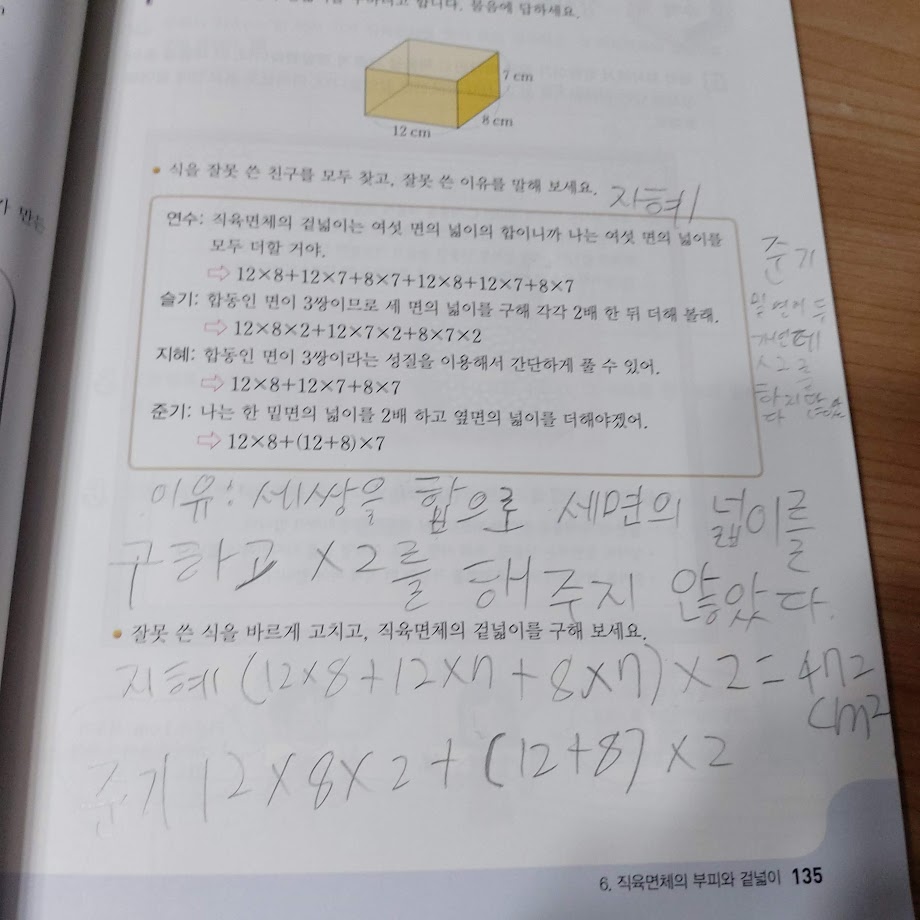 니다. 물음에 답하세요.
7 cm
8 cm
12 cm
• 식을 잘못 쓴 친구를 모두 찾고, 잘못 쓴 이유를 말해 보세요.
지혜
연수: 직육면체의 겉넓이는 여섯 면의 넓이의 합이니까 나는 여섯 면의 넓이를
모두 더할 거야.
⇨ 12×8+12×7+8×7+12×8+12×7+8×7
슬기: 합동인 면이 3쌍이므로 세 면의 넓이를 구해 각각 2배 한 뒤 더해 볼래.
⇨ 12×8×2+12×7×2+8×7×2
지혜: 합동인 면이 3쌍이라는 성질을 이용해서 간단하게 풀 수 있어.
⇨ 12×8+12×7+8×7
준기: 나는 한 밑면의 넓이를 2배 하고 옆면의 넓이를 더해야겠어.
⇨ 12×8+(12+8)×7
준기
밑면이 두
개인데
×2를
하지 않았
다
이유: 세쌍을 합으로 세면의 넓이를
구하고 ×2를 해주지 않았다.
• 잘못 쓴 식을 바르게 고치고, 직육면체의 겉넓이를 구해 보세요.
지혜 (12×8+12×7+8×7)×2=472
cm2
준기 12×8×2+(12+8)×2
6. 직육면체의 부피와 겉넓이 135